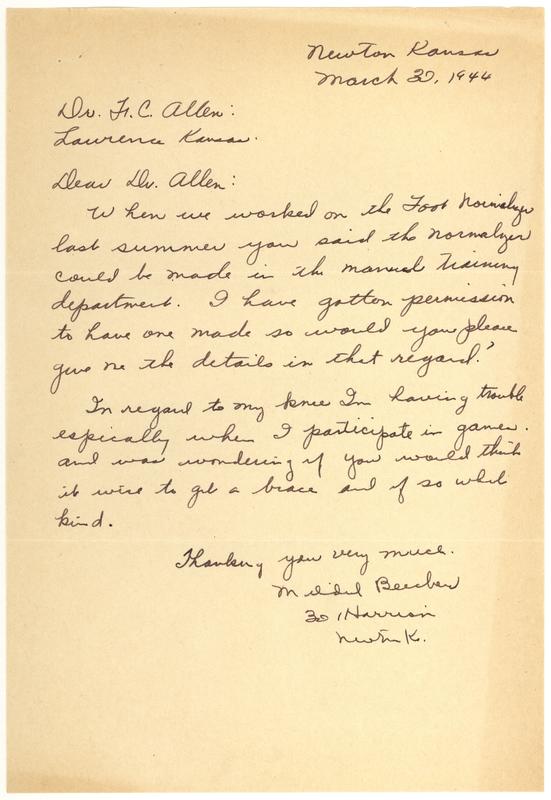 Newton Kansas
March 30, 1944
Dr. F. C. Allen:
Lawrence Kansas.
Dear Dr. Allen:
When we worked on the Foot Normalizer
last summer you said the normalizer
could be made in the manual training
department. I have gotten permission
to have one made so would you please
give me the details in that regard?
In regard to my knee Im having trouble
espically when I participate in games.
and was wondering if you would think
it wise to get a brace and if so what
kind.
Thanking you very much.
Beecher
301 Harrison
Newton K.